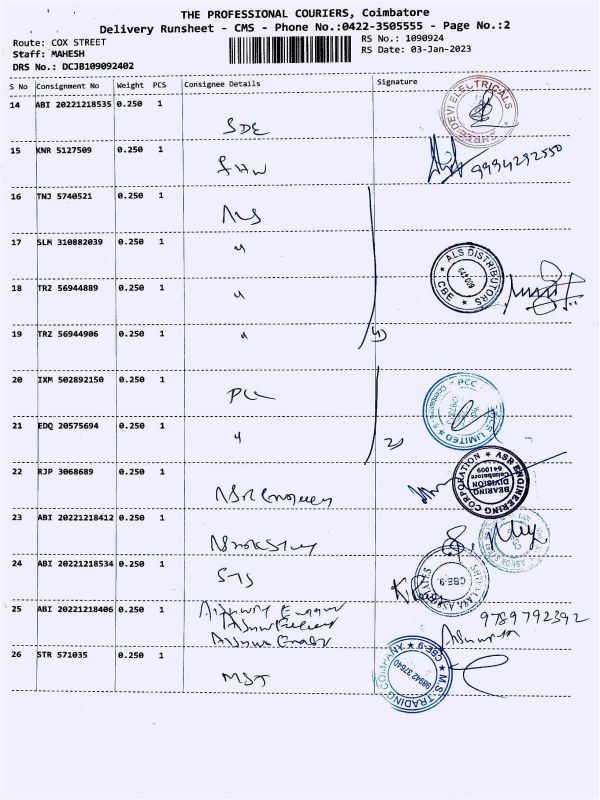 THE PROFESSIONAL COURIERS, Coimbatore
Delivery Runsheet - CMS - Phone No.:0422-3505555 - Page No.:2
Route: COX STREET
RS No.: 1090924
Staff: MAHESH
RS Date: 03-Jan-2023
DRS No.: DCJB109092402
S No Consignment No Weight PCS Consignee Details Signature
14 ABI 20221218535 0.250 1 SDE
SHREE DEVI ELECTRICALS
15 KNR 5127509 0.250 1 SHW 9994292550
16 TNJ 5740521 0.250 1 ALS
17 SLM 310882039 0.250 1 "
ALS DISTRIBUTORS
641 009
★ CBE ★
18 TRZ 56944889 0.250 1 "
19 TRZ 56944906 0.250 1 " 4)
20 IXM 502892150 0.250 1 PCC
PCC
LIMITED ★
21 EDQ 20575694 0.250 1 " 2)
22 RJP 3068689 0.250 1
ASR ENGINEERING CORPORATION ★
BEARING
DIVISION
Coimbatore
641009
23 ABI 20221218412 0.250 1
24 ABI 20221218534 0.250 1 STS
CBE-9.
25 ABI 20221218406 0.250 1
9789792392
26 STR 571035 0.250 1 MST
M.S. TRADING COMPANY ★ CBE-9 ★
98942 37640